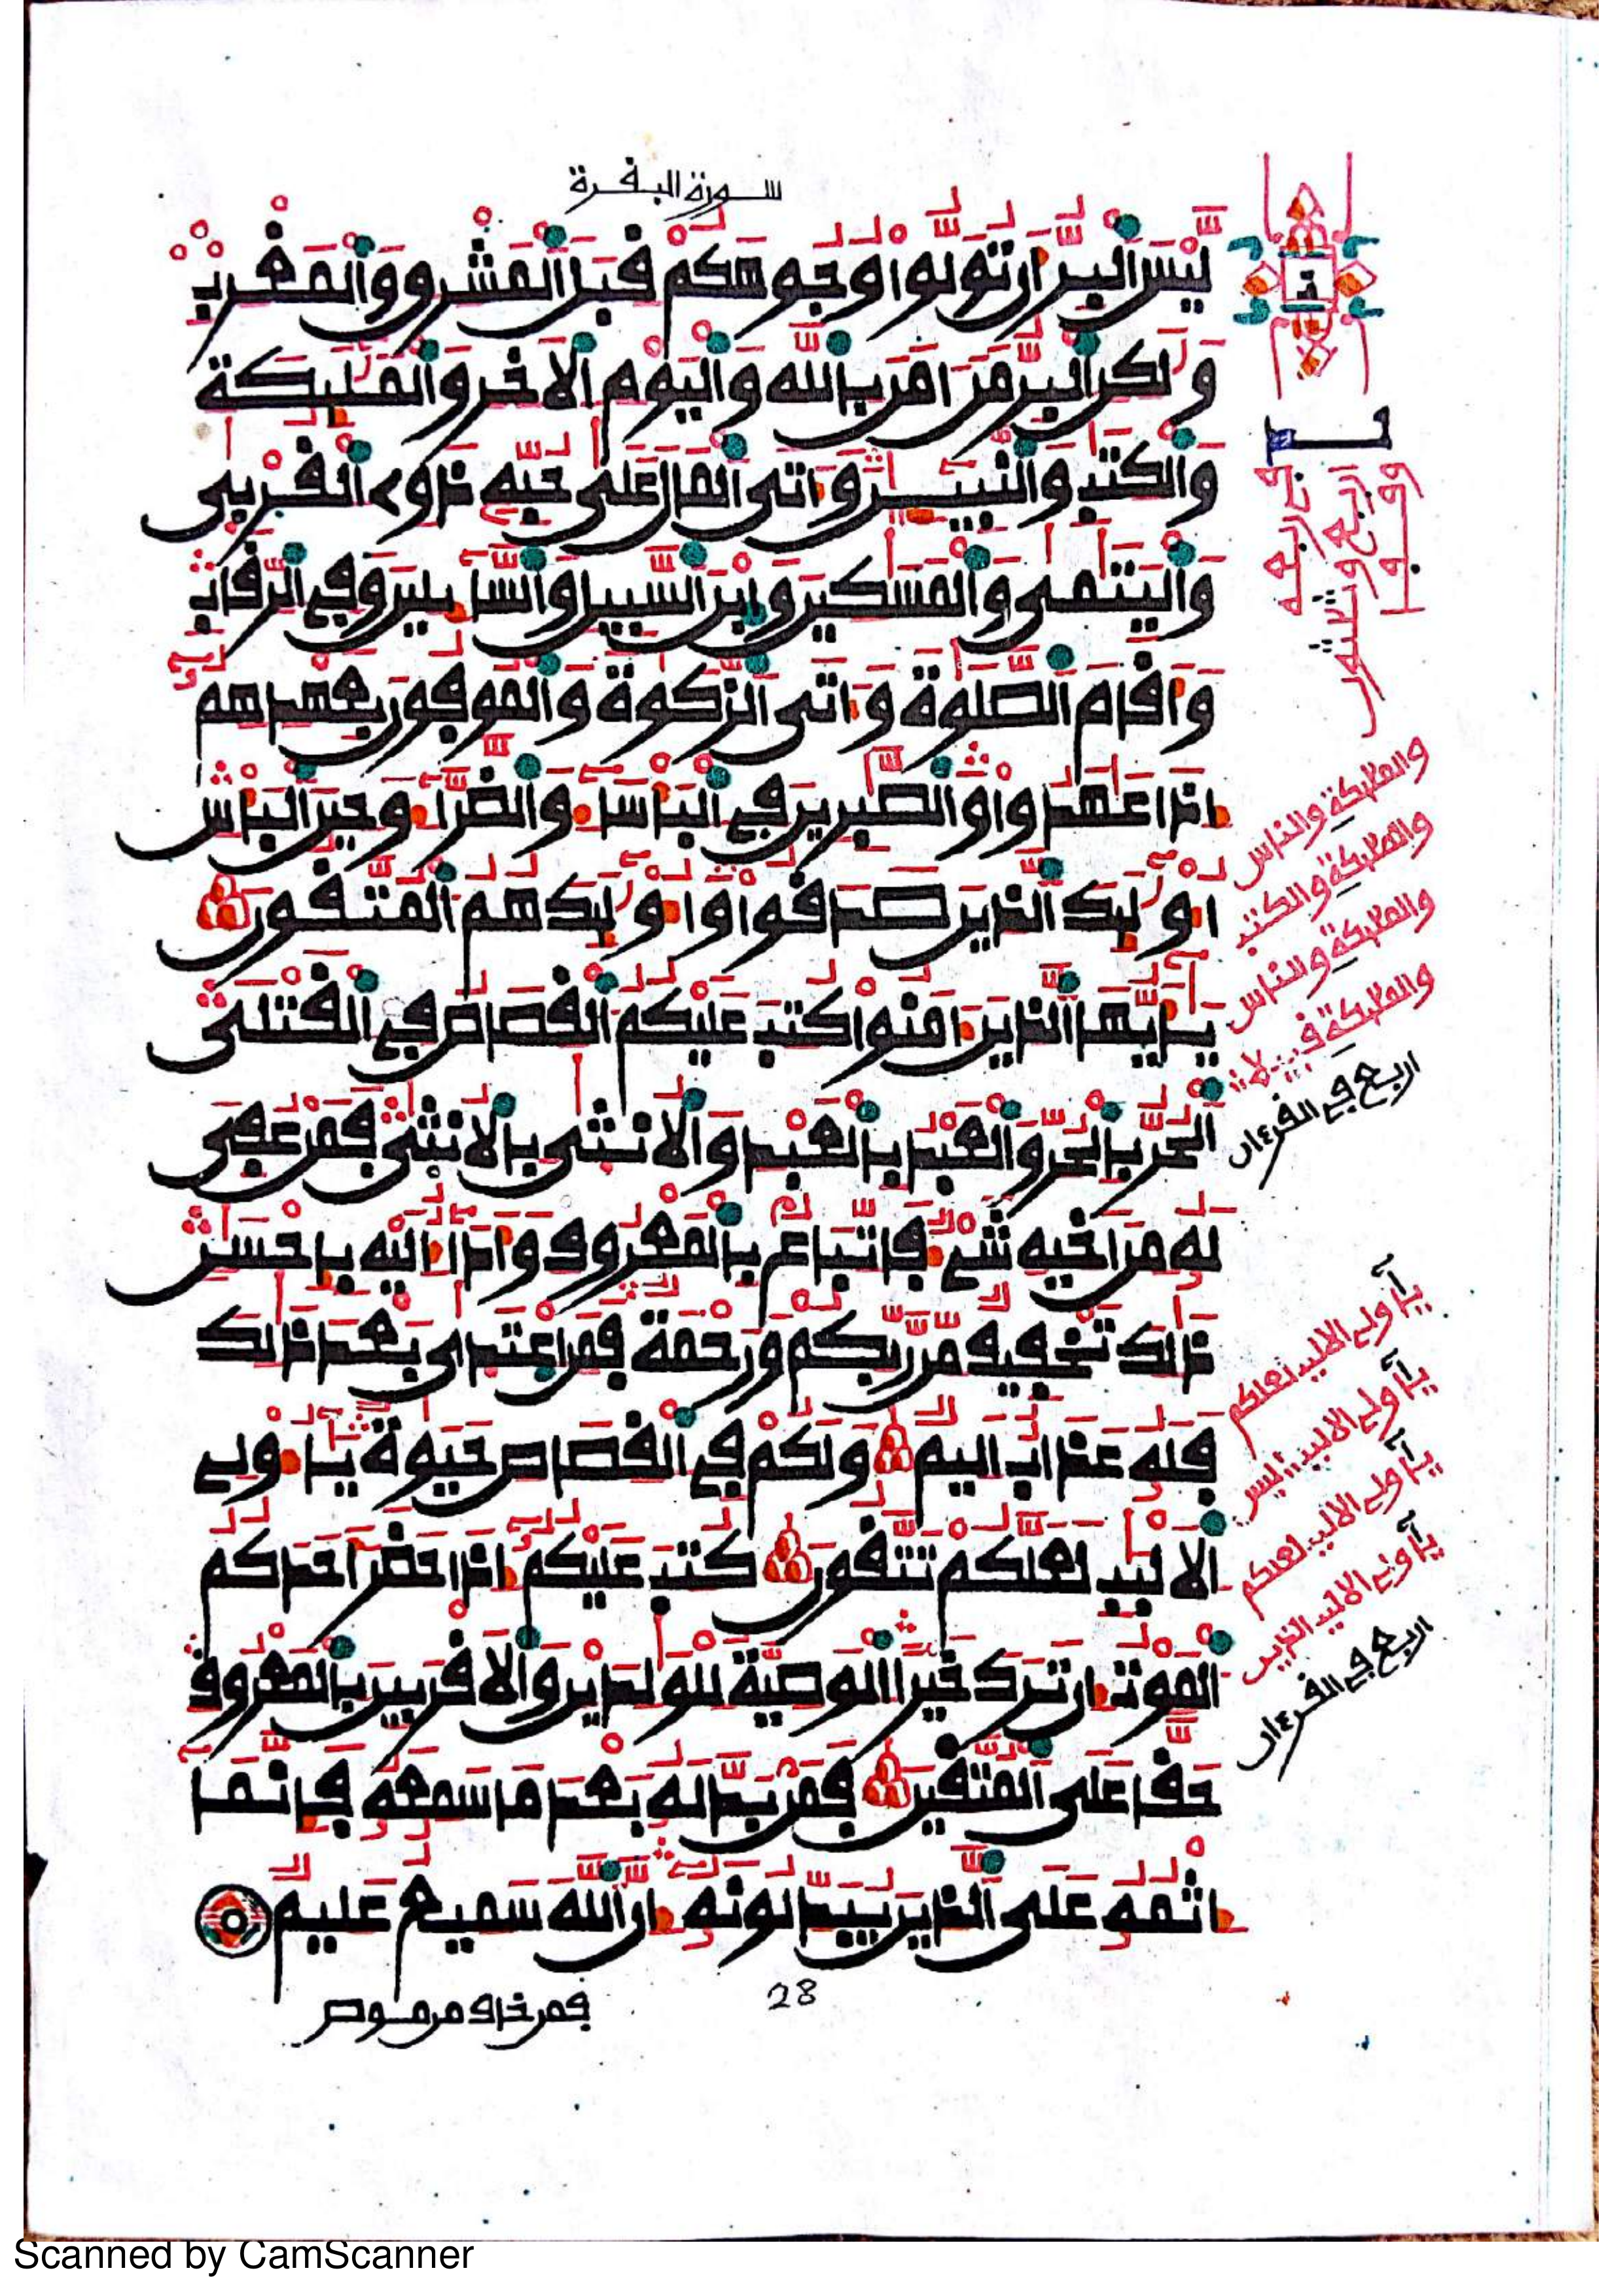 سورة البفرة
لَّيْسَ اَ۬لْبِرُّ أَن تُوَلُّوا۟ وُجُوهَكُمْ فِبَلَ اَ۬لْمَشْرِقِ وَالْمَغْرِبِ
وَلَٰكِنِ اِ۬لْبِرُّ مَنَ اٰمَنَ بِاللَّهِ وَالْيَوْمِ اِ۬لَاخِرِ وَالْمَلَٰٓئِكَةِ
وَالْكِتَٰبِ وَالنَّبِيٓـِٔۧنَ وَءَاتَى اَ۬لْمَالَ عَلَىٰ حُبِّهِۦ ذَوِے اِ۬لْفُرْبىٰ
وَالْيَتَٰمىٰ وَالْمَسَٰكِينَ وَابْنَ اَ۬لسَّبِيلِ وَالسَّآئِلِينَ وَفِے اِ۬لرِّفَابِ
وَأَفَامَ اَ۬لصَّلَوٰةَ وَءَاتَى اَ۬لزَّكَوٰةَ وَالْمُوفُونَ بِعَهْدِهِمُۥٓ
إِذَا عَٰهَدُوا۟ وَالصَّٰبِرِينَ فِے اِ۬لْبَأْسَآءِ وَالضَّرَّآءِ وَحِينَ اَ۬لْبَأْسِ
أُو۟لَٰٓئِكَ اَ۬لذِينَ صَدَفُوا۟ وَأُو۟لَٰٓئِكَ هُمُ اُ۬لْمُتَّفُونَ
يَٰٓأَيُّهَا اَ۬لذِينَ ءَامَنُوا۟ كُتِبَ عَلَيْكُمُ اُ۬لْفِصَاصُ فِے اِ۬لْفَتْلَى
اَ۬لْحُرُّ بِالْحُرِّ وَالْعَبْدُ بِالْعَبْدِ وَالُانث۪ىٰ بِالُانث۪ىٰ فَمَنْ عُفِيَ
لَهُۥ مِنَ اَخِيهِ شَےْءٞ فَاتِّبَاعُۢ بِالْمَعْرُوفِ وَأَدَآءٌ اِلَيْهِ بِإِحْسَٰنٖ
ذَٰلِكَ تَخْفِيفٞ مِّن رَّبِّكُمْ وَرَحْمَةٞ فَمَنِ اِ۪عْتَدىٰ بَعْدَ ذَٰلِكَ
فَلَهُۥ عَذَابٌ اَلِيمٞ وَلَكُمْ فِے اِ۬لْفِصَاصِ حَيَوٰةٞ يَٰٓأُو۟لِے
اِ۬لَالْبَٰبِ لَعَلَّكُمْ تَتَّفُونَ كُتِبَ عَلَيْكُمُۥٓ إِذَا حَضَرَ أَحَدَكُمُ
اُ۬لْمَوْتُ إِن تَرَكَ خَيْراً اِ۬لْوَصِيَّةُ لِلْوَٰلِدَيْنِ وَالَافْرَبِينَ بِالْمَعْرُوفِ
حَفّاً عَلَى اَ۬لْمُتَّفِينَ فَمَنۢ بَدَّلَهُۥ بَعْدَ مَا سَمِعَهُۥ فَإِنَّمَآ
إِثْمُهُۥ عَلَى اَ۬لذِينَ يُبَدِّلُونَهُۥٓ إِنَّ اَ۬للَّهَ سَمِيعٌ عَلِيمٞ
28
فمن خاف من موص
والمليكة والناس
والمليكة والكتب
والمليكة والناس
والمليكة فبيلا
اربع في الفرءان
يأولي الالبب لعلكم
يأولي الالبب ليس
يأولي الالبب لعلكم
يأولي الالبب الذين
اربع في الفرءان
Scanned by CamScanner